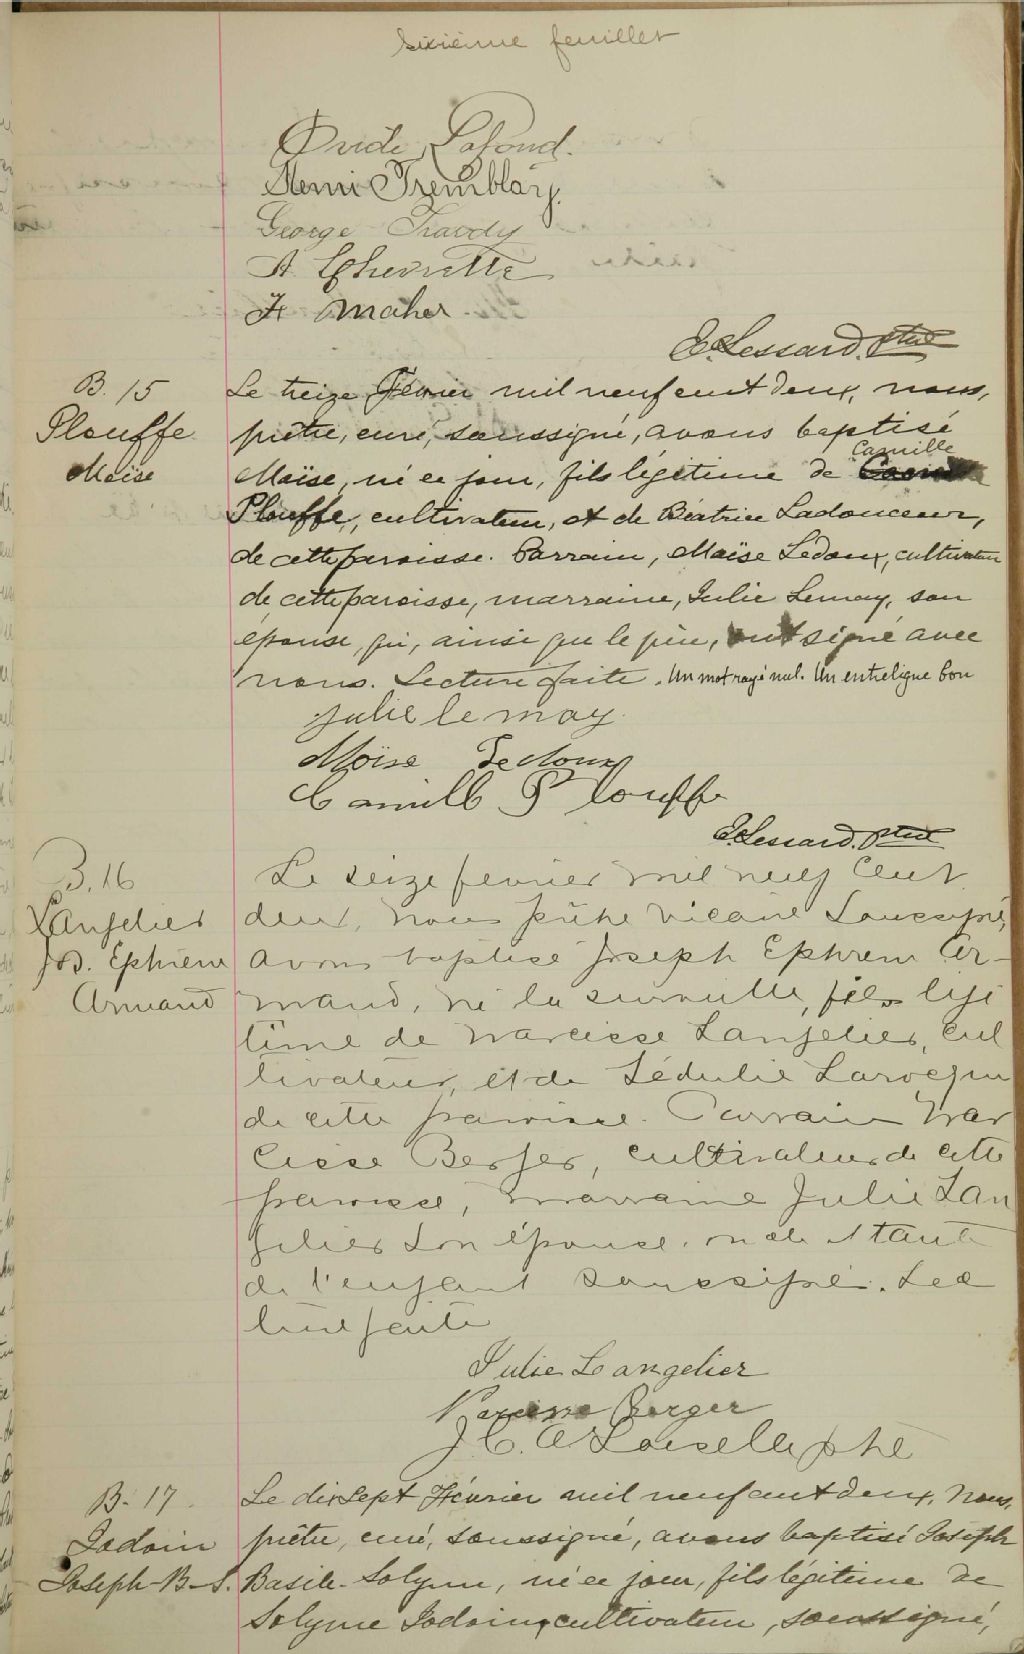 Sixième feuillet
Ovide Lafond.
Henri Tremblay.
George
A Chevrette
H Maher
E. Lessard. Ptre
B. 15
Plouffe
Moïse
Le treize Février mil neuf cent deux, nous,
prêtre, curé, soussigné, avons baptisé
Camille
Moïse, né ce jour, fils légitime de
Plouffe, cultivateur, et de Béatrice Ladouceur,
de cette paroisse. Parrain, Moïse Ledoux, cultivateur
de cette paroisse, marraine, Julie Lemay, son
épouse, qui, ainsi que le père, ont signé avec
nous. Lecture faite. Un mot rayé nul. Un entreligne bon
Julie le may
Moïse Ledoux
Camille Plouffe
E. Lessard. Ptre
B. 16
Langelier
Jos. Ephrem
Armand
Le seize fevrier mil neuf cent
deux, nous prêtre vicaire soussigné,
avons baptisé Joseph Ephrem Ar-
mand, né la surveille, fils légi
time de Narcisse Langelier, cul
tivateur, et de Sédulie Larocque
de cette paroisse. Parrain Nar
cisse Berger, cultivateur de cette
paroisse, marraine Julie Lan
gelier son épouse, oncle et tante
de l'enfant soussignés. Lec
ture faite
Julie Langelier
Narcisse Berger
J. C. A Loiselle ptre
B. 17
Jodoin
Joseph-B-S.
Le dix sept Février mil neuf cent deux, nous,
prêtre, curé, soussigné, avons baptisé Joseph
Basile-Solyme, né ce jour, fils légitime de
Solyme Jodoin, cultivateur, soussigné,